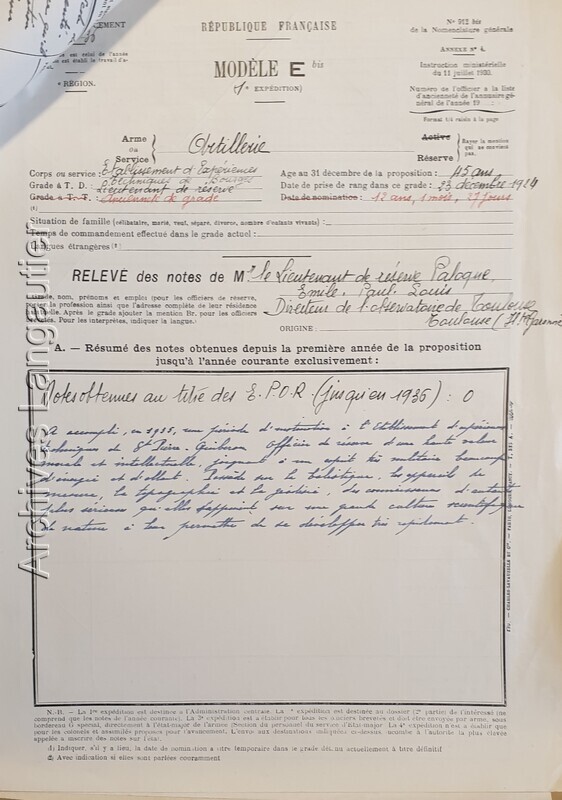 CEMENT
RÉPUBLIQUE FRANÇAISE
N° 912 bis
de la Nomenclature générale
ANNEXE N° 4.
MODÈLE E bis
(1re EXPÉDITION)
Instruction ministérielle
du 11 juillet 1930.
RÉGION.
Numéro de l'officier à la liste
d'ancienneté de l'annuaire gé-
néral de l'année 19
Format 1/2 raisin à la page
Arme
ou
Service
Artillerie
Active
Réserve
Rayer la mention
qui ne convient
pas.
Corps ou service : Etablissement d'Expériences
techniques de Bourges
Age au 31 décembre de la proposition : 45 ans
Grade à T. D. : Lieutenant de réserve
Date de prise de rang dans ce grade : 23 décembre 1924
Grade à T. T. : Ancienneté de grade
Date de nomination : 12 ans, 1 mois, 27 jours
(1)
Situation de famille (célibataire, marié, veuf, séparé, divorcé, nombre d'enfants vivants) :
Temps de commandement effectué dans le grade actuel :
Langues étrangères (2)
RELEVÉ des notes de Mr le Lieutenant de réserve Paloque
Emile. Paul. Louis
Grade, nom, prénoms et emploi (pour les officiers de réserve,
porter la profession ainsi que l'adresse complète de leur résidence
habituelle. Après le grade ajouter la mention Br. pour les officiers
brevetés. Pour les interprètes, indiquer la langue.
Directeur de l'observatoire de Toulouse
Toulouse (Hte Garonne)
ORIGINE :
A. — Résumé des notes obtenues depuis la première année de la proposition
jusqu'à l'année courante exclusivement :
Notes obtenues au titre des E.P.O.R (jusqu'en 1936) : 0
A accompli, en 1935, une période d'instruction à l'Etablissement d'expériences
techniques de St Pierre-Quiberon. Officier de réserve d'une haute valeur
morale et intellectuelle, joignant à un esprit très militaire beaucoup
d'énergie et d'allant. Possède sur la balistique, les appareils de
mesure, la topographie et la géodésie, des connaissances d'autant
plus sérieuses qu'elles s'appuient sur une grande culture scientifique
de nature à leur permettre de se développer très rapidement.
Archives Langautier
N.-B. — La 1re expédition est destinée à l'Administration centrale. La 2e expédition est destinée au dossier (2e partie) de l'intéressé (ne
comprend que les notes de l'année courante). La 3e expédition est à établir pour tous les officiers brevetés et doit être envoyée par arme, sous
bordereau G spécial, directement à l'état-major de l'armée (Section du personnel du service d'état-major. La 4e expédition n'est à établir que
pour les colonels et assimilés proposés pour l'avancement. L'envoi aux destinations indiquées ci-dessus, incombe à l'autorité la plus élevée
appelée à inscrire des notes sur l'état.
(1) Indiquer, s'il y a lieu, la date de nomination à titre temporaire dans le grade détenu actuellement à titre définitif
(2) Avec indication si elles sont parlées couramment